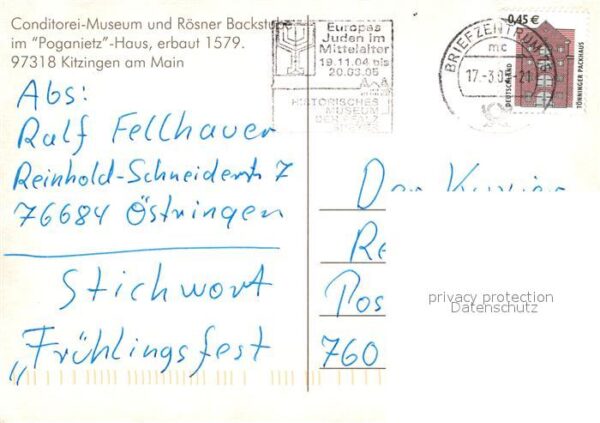 Conditorei-Museum und Rösner Backstube
im "Poganietz"-Haus, erbaut 1579.
97318 Kitzingen am Main
Europas
Juden im
Mittelalter
19.11.04 bis
20.03.05
HISTORISCHES
MUSEUM
DER PFALZ
BRIEFZENTRUM
mc
17.-3.05-21
0,45 €
DEUTSCHLAND
TÖNNINGER PACKHAUS
Abs:
Ralf Fellhauer
Reinhold-Schneiderstr 7
76684 Östringen
Stichwort
„Frühlingsfest
Der Kurier
Re
Pos
760
privacy protection
Datenschutz